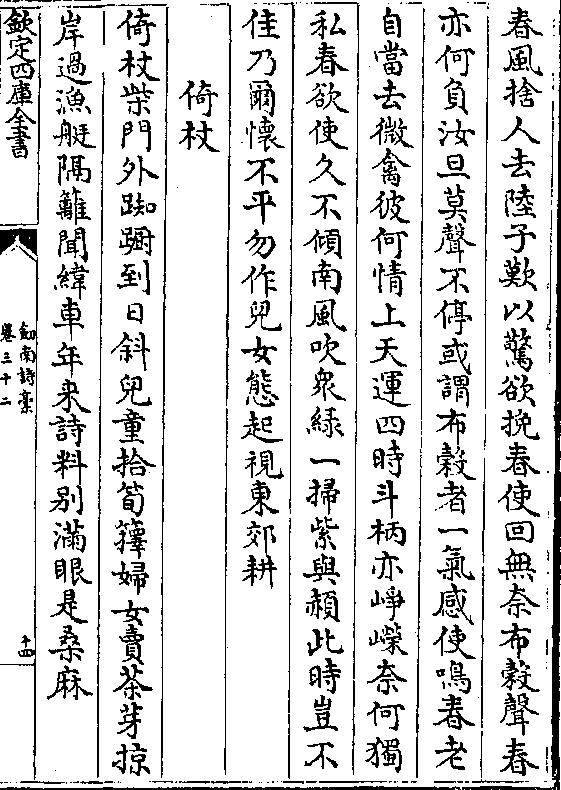 春風捨人去陸子歎以驚欲挽春使回無奈布穀聲春
亦何負汝旦莫聲不停或謂布穀者一氣感使鳴春老
自當去微禽彼何情上天運四時斗柄亦崢嶸奈何獨
私春欲使久不傾南風吹衆緑一掃紫與赬此時豈不
佳乃爾懷不平勿作兒女態起視東郊耕
倚杖
倚杖柴門外踟躕到日斜兒童拾筍籜婦女賣茶芽掠
岸過漁艇隔籬聞緯車年来詩料别滿眼是桑麻
欽定四庫全書
劍南詩稾
卷三十二
十四